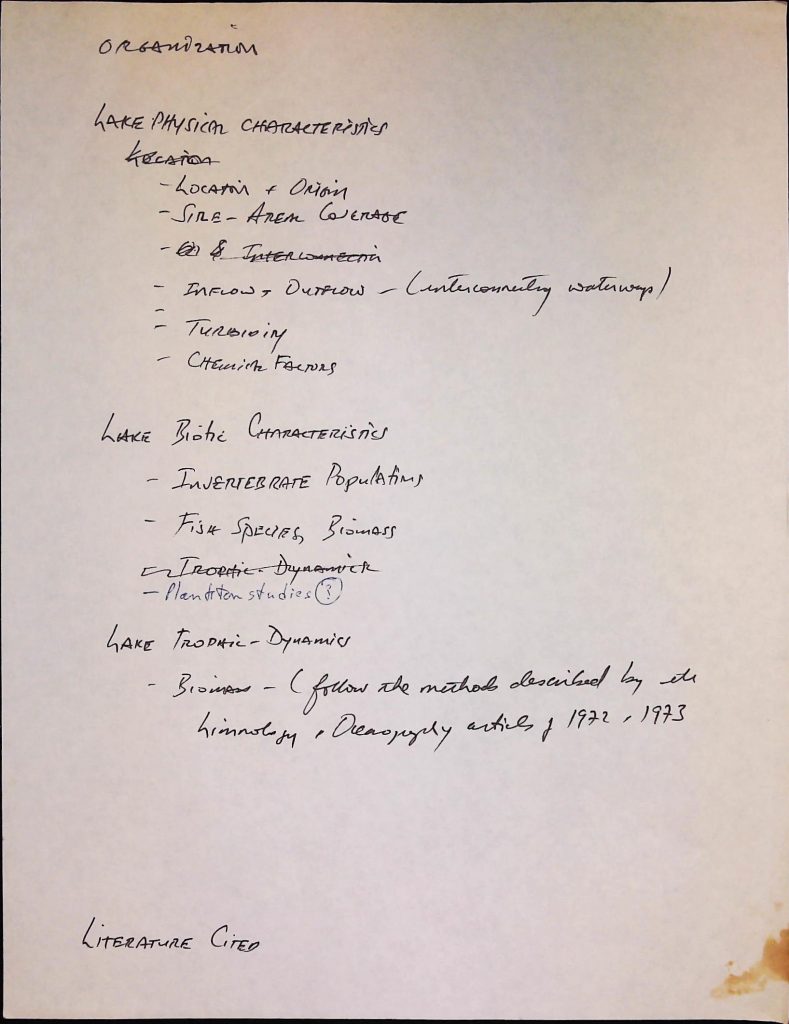 ORGANIZATION
LAKE PHYSICAL CHARACTERISTICS
LOCATION
- LOCATION + ORIGIN
- SIZE - AREA COVERAGE
- & INTERCONNECTIN
- INFLOW + OUTFLOW - (interconnecting waterways)
-
- TURBIDITY
- CHEMICAL FACTORS
LAKE Biotic CHARACTERISTICS
- INVERTEBRATE Populations
- FISH SPECIES, BIOMASS
- TROPHIC-DYNAMICS
- Plankton studies ?
LAKE TROPHIC-DYNAMICS
- BIOMASS - (follow the methods described by the
Limnology + Oceanography articles of 1972, 1973
LITERATURE CITED